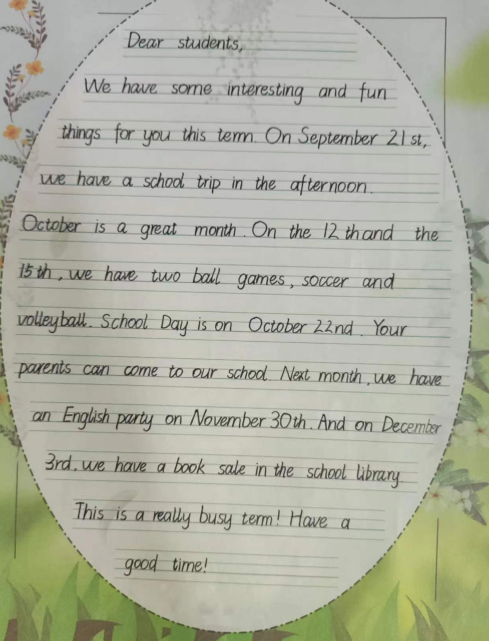 Dear students,
We have some interesting and fun
things for you this term. On September 21st,
we have a school trip in the afternoon.
October is a great month. On the 12thand the
15th, we have two ball games, soccer and
volleyball. School Day is on October 22nd. Your
parents can come to our school. Next month, we have
an English party on November 30th. And on December
3rd. we have a book sale in the school library.
This is a really busy term! Have a
good time!